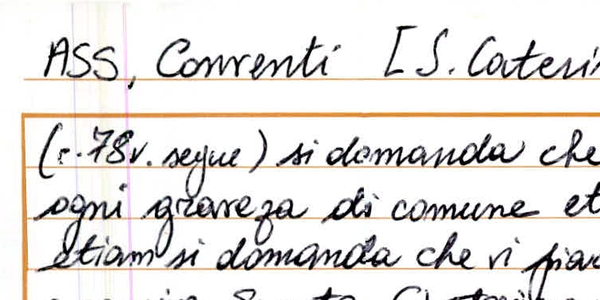 ASS, Conventi [S. Cateri
(c. 78v. segue) si domanda che
ogni graveza di comune et
etiam si domanda che vi piac